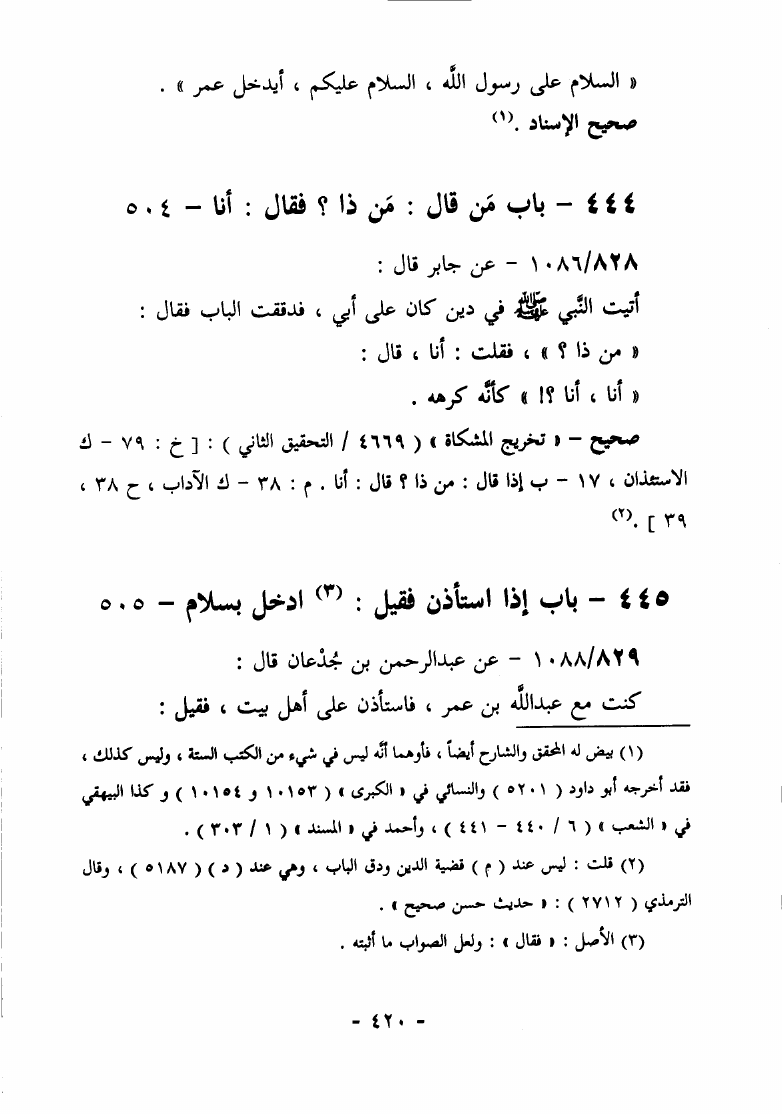 « السلام على رسول اللَّه ، السلام عليكم ، أيدخل عمر » .
صحيح الإسناد .(١)
٤٤٤ – باب مَن قال : مَن ذا ؟ فقال : أنا – ٥٠٤
١٠٨٦/٨٢٨ – عن جابر قال :
أتيت النَّبي ﷺ في دين كان على أبي ، فدققت الباب فقال :
« من ذا ؟ » ، فقلت : أنا ، قال :
« أنا ، أنا ؟! » كأنَّه كرهه .
صحيح – « تخريج المشكاة » ( ٤٦٦٩ / التحقيق الثاني ) : [ خ : ٧٩ – ك
الاستئذان ، ١٧ – ب إذا قال : من ذا ؟ قال : أنا . م : ٣٨ – ك الآداب ، ح ٣٨ ،
٣٩ ] .(٢)
٤٤٥ – باب إذا استأذن فقيل : (٣) ادخل بسلام – ٥٠٥
١٠٨٨/٨٢٩ – عن عبدالرحمن بن جُدْعان قال :
كنت مع عبداللَّه بن عمر ، فاستأذن على أهل بيت ، فقيل :
(١) بيض له المحقق والشارح أيضاً ، فأوهما أنَّه ليس في شيء من الكتب الستة ، وليس كذلك ،
فقد أخرجه أبو داود ( ٥٢٠١ ) والنسائي في « الكبرى » ( ١٠١٥٣ و ١٠١٥٤ ) و كذا البيهقي
في « الشعب » ( ٦ / ٤٤٠ – ٤٤١ ) ، وأحمد في « المسند » ( ١ / ٣٠٣ ) .
(٢) قلت : ليس عند ( م ) قضية الدين ودق الباب ، وهي عند ( د ) ( ٥١٨٧ ) ، وقال
الترمذي ( ٢٧١٢ ) : « حديث حسن صحيح » .
(٣) الأصل : « فقال » : ولعل الصواب ما أثبته .
- ٤٢٠ -